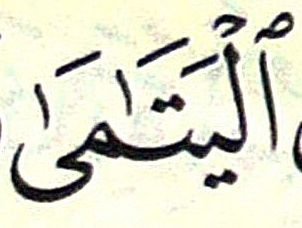 ٱلْيَتَٰمَىٰ